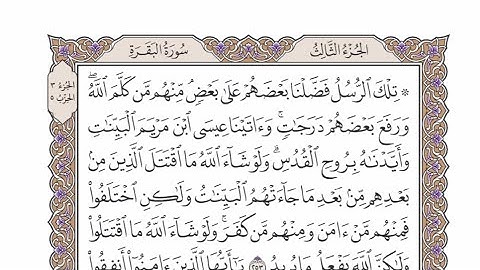 الجُزْءُ الثَّالِثُ
سُورَةُ البَقَرَةِ
الجُزْءُ ٣
الحِزْبُ ٥
۞ تِلْكَ ٱلرُّسُلُ فَضَّلْنَا بَعْضَهُمْ عَلَىٰ بَعْضٍۘ مِّنْهُم مَّن كَلَّمَ ٱللَّهُۖ
وَرَفَعَ بَعْضَهُمْ دَرَجَٰتٍۚ وَءَاتَيْنَا عِيسَى ٱبْنَ مَرْيَمَ ٱلْبَيِّنَٰتِ
وَأَيَّدْنَٰهُ بِرُوحِ ٱلْقُدُسِۗ وَلَوْ شَآءَ ٱللَّهُ مَا ٱقْتَتَلَ ٱلَّذِينَ مِنۢ
بَعْدِهِم مِّنۢ بَعْدِ مَا جَآءَتْهُمُ ٱلْبَيِّنَٰتُ وَلَٰكِنِ ٱخْتَلَفُوا۟
فَمِنْهُم مَّنْ ءَامَنَ وَمِنْهُم مَّن كَفَرَۚ وَلَوْ شَآءَ ٱللَّهُ مَا ٱقْتَتَلُوا۟
وَلَٰكِنَّ ٱللَّهَ يَفْعَلُ مَا يُرِيدُ ٢٥٣ يَٰٓأَيُّهَا ٱلَّذِينَ ءَامَنُوٓا۟ أَنفِقُوا۟